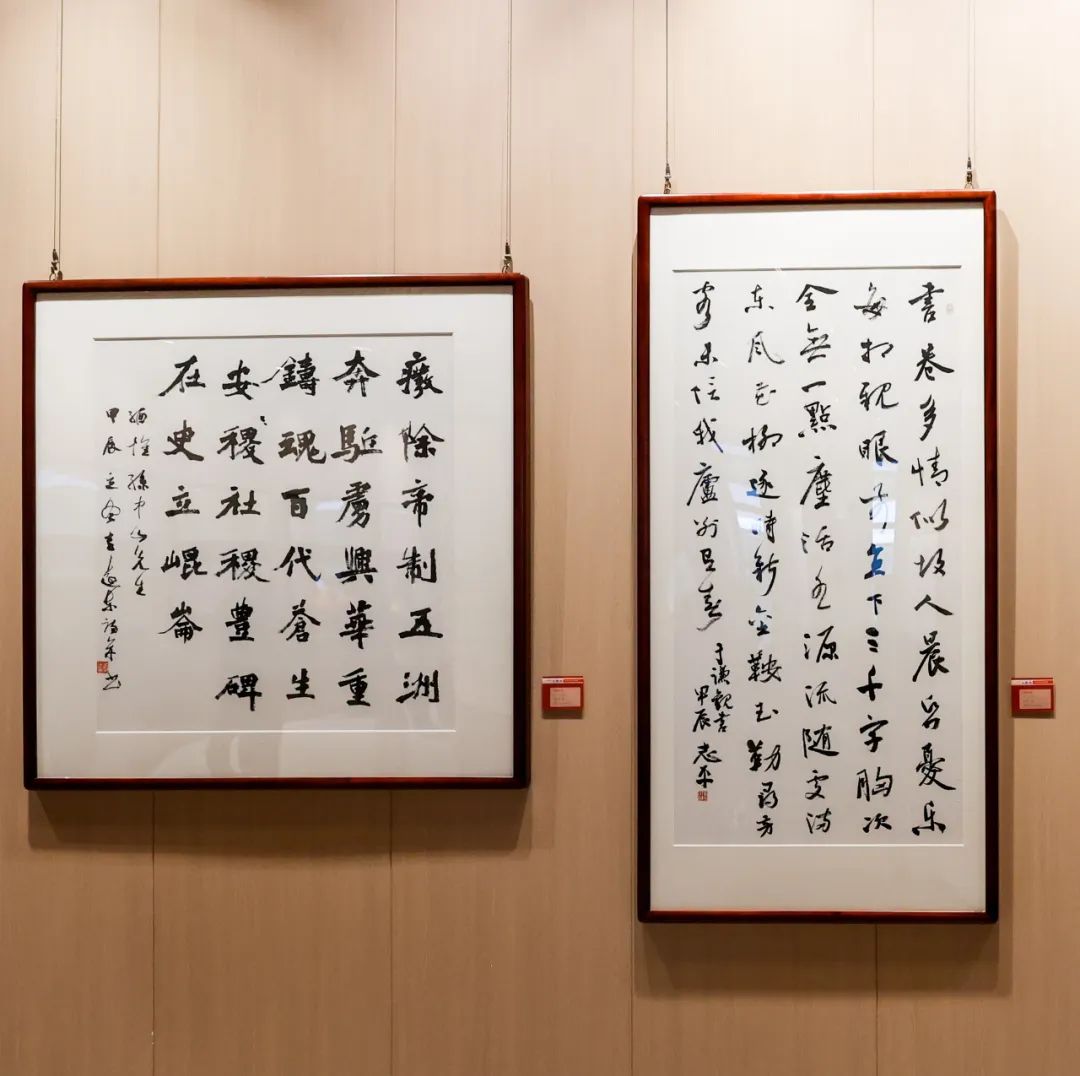 癈除帝制五洲
奔駈虜興華重
鑄魂百代蒼生
安稷社稷豐碑
在史立崐崙
緬懷孫中山先生
甲辰
書卷多情似故人晨昏憂乐
每相親眼前直下三千字胸次
全無一點塵活水源流随處满
东風花柳逐時新金鞍玉勒尋芳
客未信我廬别有春
于謙觀書
甲辰志平